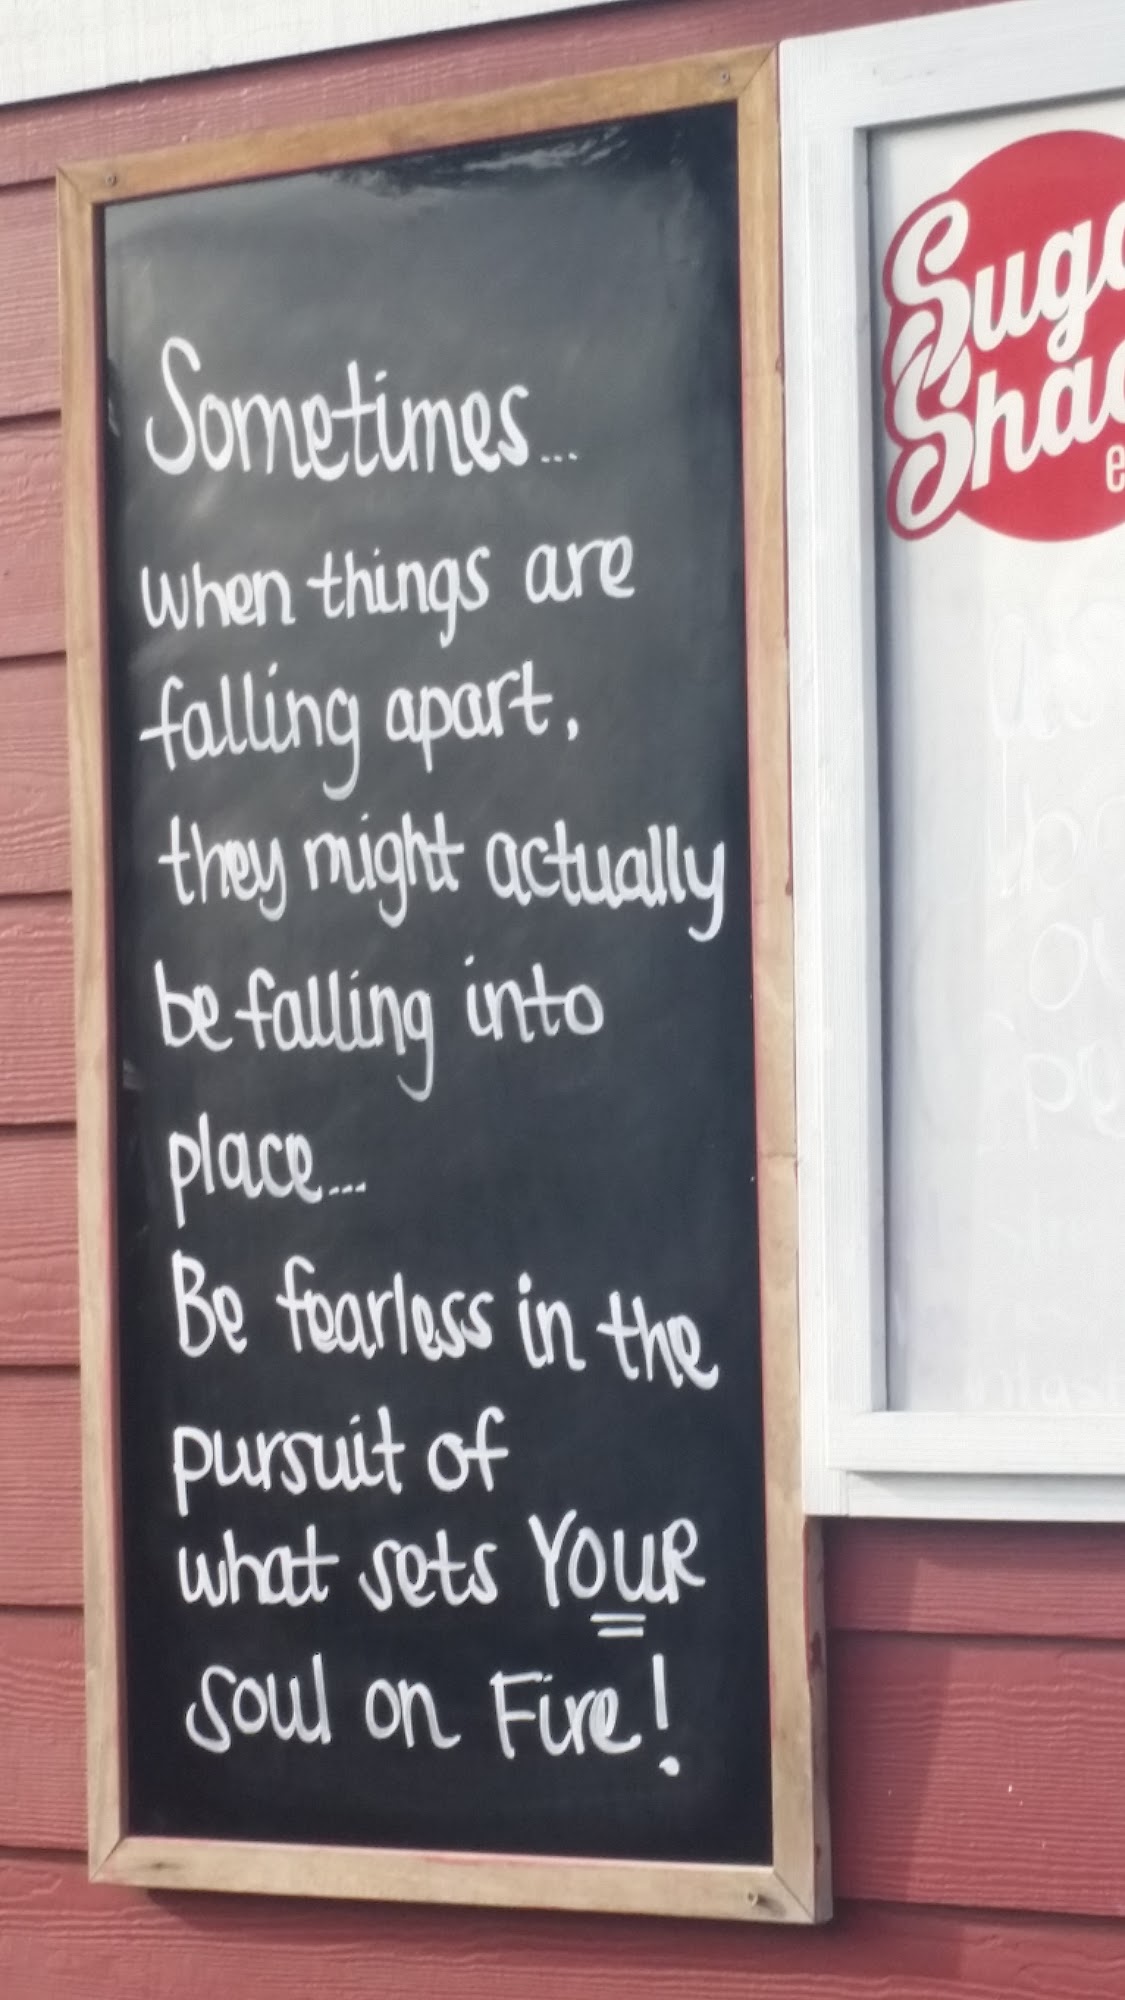 Sometimes...
when things are
falling apart,
they might actually
be falling into
place...
Be fearless in the
pursuit of
what sets YOUR
soul on Fire!